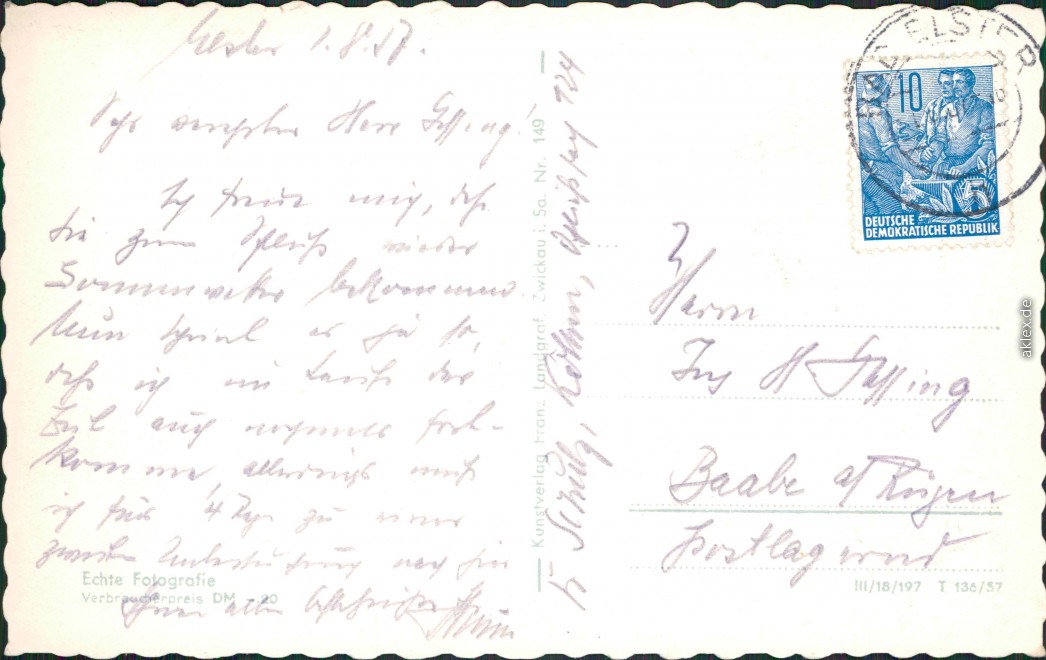 Elster 1.8.57.
Sehr verehrter Herr
Ich freue mich, daß
Sie zum Schluß wieder
Sommerwetter bekommen
Nun scheint es ja so,
daß ich im Laufe der
Zeit auch nochmals fort-
komme, allerdings muß
ich für 4 Tage zu einer
zweiten Untersuchung nach
Ihnen alles
Echte Fotografie
Verbraucherpreis DM -.20
Kunstverlag Franz Landgraf, Zwickau i. Sa. Nr. 149
Schulz, Köthen, 124
BAD ELSTER
10
5
DEUTSCHE
DEMOKRATISCHE REPUBLIK
Herrn
Ing H
Baabe a/Rügen
Postlagernd
III/18/197 T 136/57
aklex.de